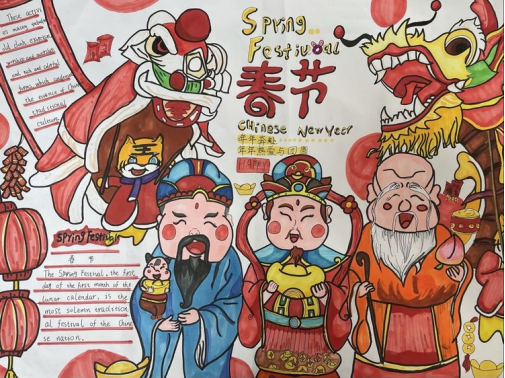 These activi
old dark
and rich and colorful
forms, which
the essence of Chin
traditional
culture.
Spring
Festival
春节
Chinese New Year
年年
年年热爱与团圆
Happy
Spring Festival
春 节
The Spring Festival, the first
day of the first month of the
lunar calendar, is the
most solemn tradition
al festival of the Chine
se nation.